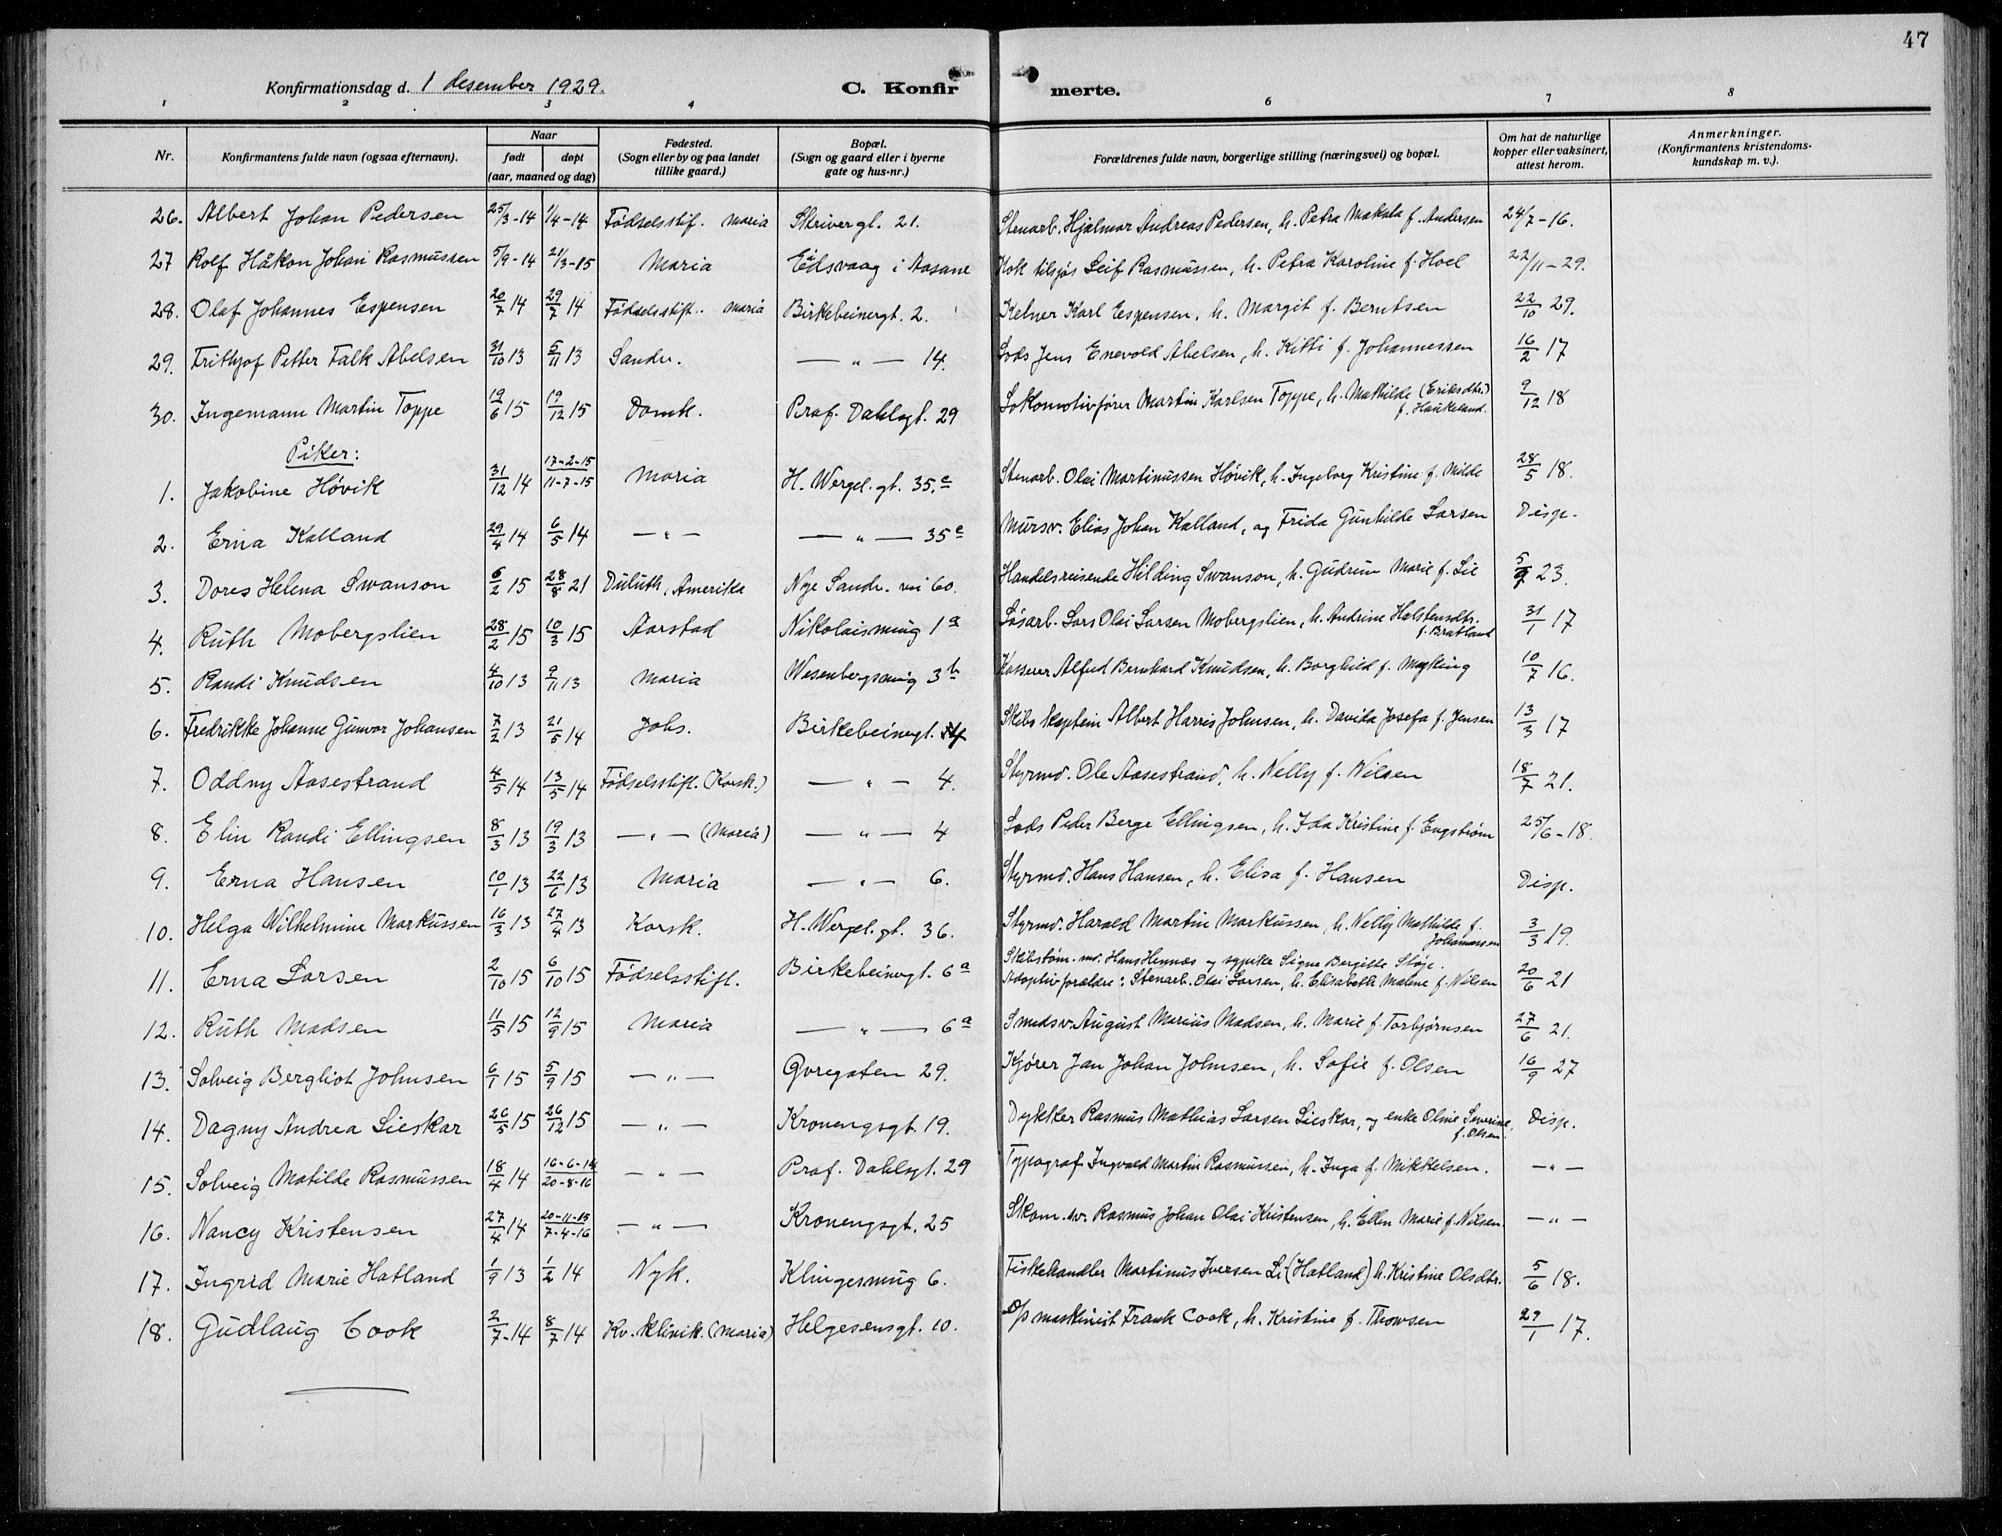 47
Konfirmationsdag d. 1 desember 1929.
C. Konfir merte.
1 2 3 4 6 7 8
Nr. Konfirmantens fulde navn (ogsaa efternavn). Naar født døpt (aar, maaned og dag) Fødested. (Sogn eller by og paa landet tillike gaard.) Bopæl. (Sogn og gaard eller i byerne gate og hus-nr.) Forældrenes fulde navn, borgerlige stilling (næringsvei) og bopæl. Om hat de naturlige kopper eller vaksinert, attest herom. Anmerkninger. (Konfirmantens kristendoms-kundskap m. v.).
26. Albert Johan Pedersen 25/3-14 1/4-14 Fødselsstif. Maria Skrivergt. 21. Stenarb. Hjalmar Andreas Pedersen, h. Petra Makala f. Andersen 24/7-16.
27 Rolf Håkon Johan Rasmussen 5/9-14 21/3-15 Maria Eidsvaag i Aasane Kok tilsjøs Leif Rasmussen, h. Petra Karoline f. Hoel 22/11-29.
28. Olaf Johannes Espensen 20/7 14 29/7 14 Fødselsstift. Maria Birkebeinergt. 2. Kelner Karl Espensen, h. Margit f. Berntsen 22/10 29.
29. Frithjof Petter Falk Abelsen 31/10 13 5/11 13 Sandv. — „ — 14. Lods Jens Enevold Abelsen, h. Kitti f. Johannessen 16/2 17
30. Ingemann Martin Toppe 19/6 15 19/12 15 Domk. Prof. Dahlsgt. 29 Lokomotivfører Martin Karlsen Toppe, h. Mathilde (Eriksdtr.) f. Haukeland. 9/12 18
Piker:
1. Jakobine Høvik 31/12 14 17-2-15 11-7-15 Maria H. Wergel. gt. 35.c Stenarb. Olai Martinussen Høvik, h. Ingeborg Kristine f. Milde 28/5 18.
2. Erna Kalland 29/4 14 6/5 14 — „ — — „ — 35c Mursv. Elias Johan Kalland, og Frida Gunhilde Larsen Disp.
3. Dores Helena Swanson 6/2 15 28/8 21 Duluth, Amerika Nye Sandv. vei 60. Handelsreisende Hilding Swanson, h. Gudrun Marie f. Lie 5/9 23.
4. Ruth Mobergslien 28/2 15 10/3 15 Aarstad Nikolaismug 1a Løsarb. Lars Olai Larsen Mobergslien, h. Andrine Halstensdtr. f. Bratland 31/1 17
5. Randi Knudsen 4/10 13 9/11 13 Maria Wesenbergsmug 3b Kasserer Alfred Bernhard Knudsen, h. Borghild f. Myking 10/7 16.
6. Fredrikke Johanne Gunvor Johansen 7/2 13 21/5 14 Johs. Birkebeinergt. 4 Skibs kaptein Albert Harris Johnsen, h. Davida Josefa f. Jensen 13/3 17
7. Oddny Aasestrand 4/5 14 13/5 14 Fødselsstift. (Korsk.) — „ — 4. Styrmd. Ole Aasestrand, h. Nelly f. Nilsen 18/7 21.
8. Elin Randi Ellingsen 8/3 13 19/3 13 — „ — (Maria) — „ — 4 Lods Peder Berge Ellingsen, h. Ida Kristine f. Engstrøm 25/6-18.
9. Erna Hansen 10/1 13 22/6 13 Maria — „ — 6. Styrmd. Hans Hansen, h. Elisa f. Hansen Disp.
10. Helga Wilhelmine Markussen 16/3 13 27/4 13 Korsk. H. Wergel. gt. 36. Styrmd. Harald Martin Markussen, h. Nelly Mathilde f. Johannessen 3/3 19.
11. Erna Larsen 2/10 15 6/10 15 Fødselsstift. Birkebeinergt. 6a Skibstøm. md. Hans Hennæs og sypike Signe Bergitte Støge. Adoptivforældre: Stenarb. Olai Larsen, h. Elisabeth Maline f. Nilsen 20/6 21
12. Ruth Madsen 11/5 15 12/9 15 Maria — „ — 6a Smedsv. August Marius Madsen, h. Marie f. Torbjørnsen 27/6 21.
13. Solveig Bergliot Johnsen 6/1 15 5/9 15 — „ — Øvregaten 29. Kjører Jan Johan Johnsen, h. Sofie f. Olsen 16/9 27
14. Dagny Andrea Lieskar 26/5 15 26/12 15 — „ — Kronengsgt. 19. Dykker Rasmus Mathias Larsen Lieskar, og enke Oline Severine, f. Olsen. Disp.
15. Solveig Matilde Rasmussen 18/4 14 16-6-14 20-8-16 — „ — Prof. Dahlsgt. 29 Typograf Ingvald Martin Rasmussen, h. Inga f. Mikkelsen. — „ —
16. Nancy Kristensen 27/4 14 20-11-15 7-4-16 — „ — Kronengsgt. 25 Skom. sv. Rasmus Johan Olai Kristensen, h. Ellen Marie f. Nilsen. — „ —
17. Ingrid Marie Hatland 1/9 13 1/2 14 Nyk. Klingesmug 6. Fiskehandler Martinus Iversen Li (Hatland) h. Kristine Olsdtr. 5/6 18.
18. Gudlaug Cook 2/7-14 8/7 14 Kv. klinik. (Maria) Helgesensgt. 10. D/p maskinist Frank Cook, h. Kristine f. Thowsen 29/1 17.